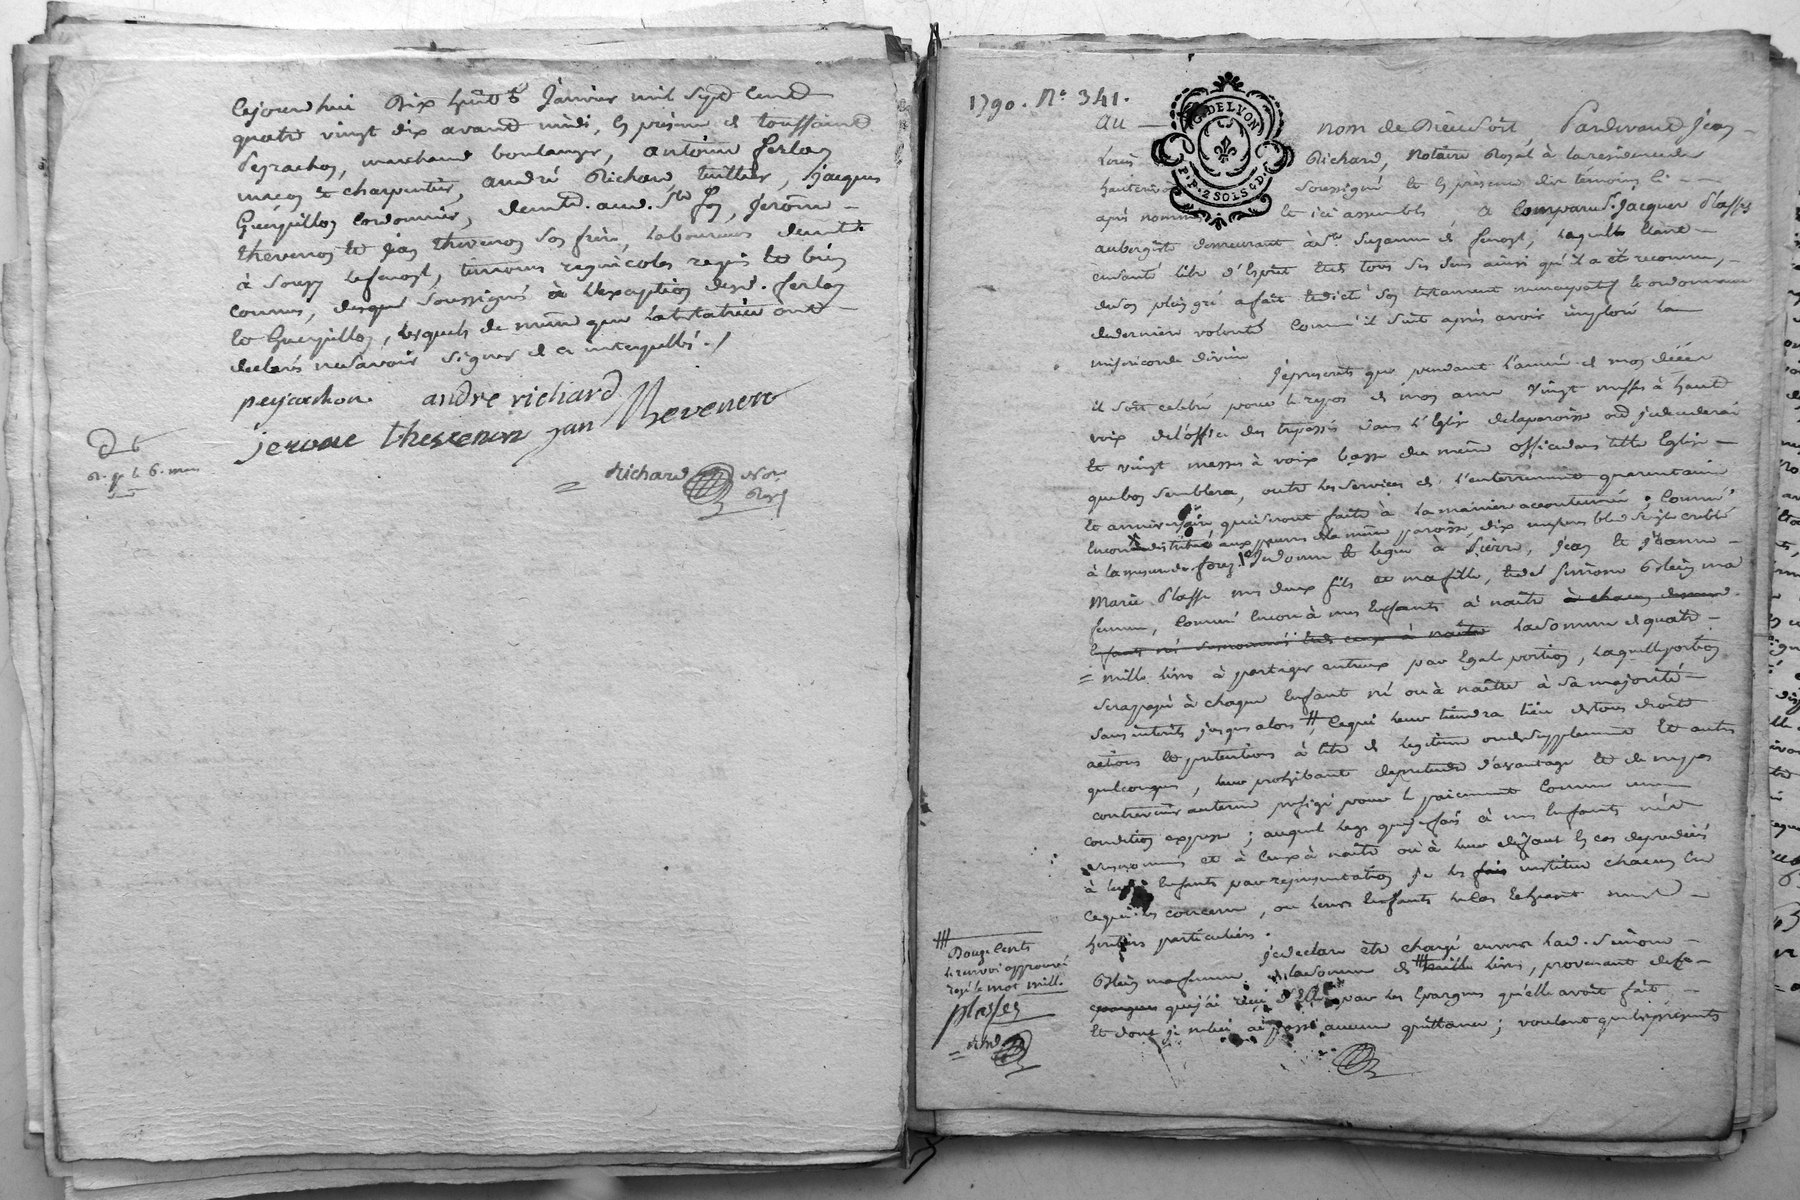 Cejourdhui dix huit Janvier mil sept cent
quatre vingt dix avant midi, En présence de toussaint
Peyrachon, marchand boulanger, antoine ferlay
maçon et charpentier, andré Richard tuillier, Jacques
Guerpillon Cordonnier, demt. aud. St. Jerôme
thevenon et Jean thevenon son frère, laboureurs demt.
à Soucy témoins requis et bien
connus, lesquels soussignés à L'exception desd. ferlay
et Guerpillon, lesquels de même que la testatrice ont
déclaré ne savoir signer de ce interpellés./
peyrachon andre richard
jerome thevenon jan thevenon
Richard Not.
Roy.
1790. N° 341.
G. DE LYON
P.P. 2 SOLS 4 D.
Au nom de Dieu soit, Pardevant Jean
Louis Richard, Notaire Royal à la résidence de
soussigné et En présence des témoins ci
après nommés et ici assemblés, a Comparu Sr. Jacques Plasses
aubergiste demeurant à Ste. Suzanne de lequel Etant
en santé libre d'Esprit Et de tous ses sens ainsi qu'il a été reconnu,
de son plein gré a fait et dicté son testament nuncupatif et ordonnance
de dernière volonté Comme il suit après avoir imploré La
miséricorde divine
Je prescrits que pendant l'année de mon décès
il soit célébré pour le repos de mon ame vingt messes à haute
voix de l'office des trépassés dans l'Eglise de la paroisse où je décéderai
Et vingt messes à voix basse du même office dans cette Eglise
que bon semblera, outre Les services de l'enterrement quarantaine
Et anniversaire qui seront faits à La manière accoutumée ; Comme
Encore distribué aux pauvres de la même paroisse, dix
à la mesure de forez. Je donne et lègue à Pierre, Jean et Jeanne
Marie Plasse mes deux fils et ma fille, et de Simone ma
femme, Comme Encore à mes Enfants à naître à chacun
Enfants né et ceux à naître La somme de quatre
mille livres à partager entreux par Egale portion, laquelle portion
sera payée à chaque Enfant né ou à naître à sa majorité
sans intérêts jusques alors, Ce qui leur tiendra lieu de tous droits
actions et prétentions à titre de légitime ou de supplément Et autres
quelconques, leur prohibant de prétendre d'avantage et de ne pas
contrevenir au terme préfigé pour le paiement Comme une
condition expresse ; auquel legs que je fais à mes Enfants nés
et à Ceux à naître où à leur défaut En cas de prédécès
à leurs Enfants par représentation je les fais institue chacun En
ce qui les concerne, ou leurs Enfants le Cas Echéant mes
héritiers particuliers.
Je déclare être chargé envers Lad. Simone
ma femme, de la somme de mille livres, provenant de
epargnes que j'ai reçu d'Elle par Les Epargnes qu'elle avoit fait
Et dont je ne lui ai passé aucune quittance ; voulant que les présents
Douze Cents
le renvoi approuvé
rayé le mot mille.
plasses